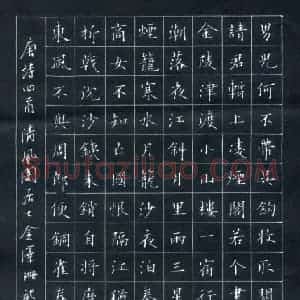 男兒何不帶吳鈎收取關
請君暫上凌煙閣若個書
金陵津渡小山樓一宿行
潮落夜江斜月里兩三星
煙籠寒水月籠沙夜泊秦
商女不知亡國恨隔江
折戟沉沙鐵未銷自將磨
東風不與周郎便銅雀
唐詩四首 清風閣居士金澤珊
Shufaziliao.com